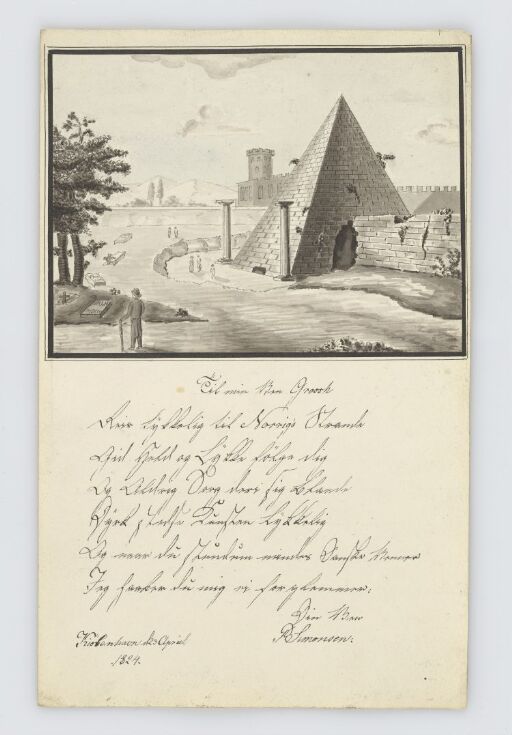 Til min Ven Grosch
Reis lykkelig til Norrigs Strande
Gid Held og Lykke følge dig
Og Aldrig Sorg deri sig blande
Dyrk stedse Kunsten lykkelig
Og naar du stundum mindes Danske Venner
Jeg haaber du mig ei forglemmer:
Din Ven
Simonsen:
Kiöbenhavn d April
1824.